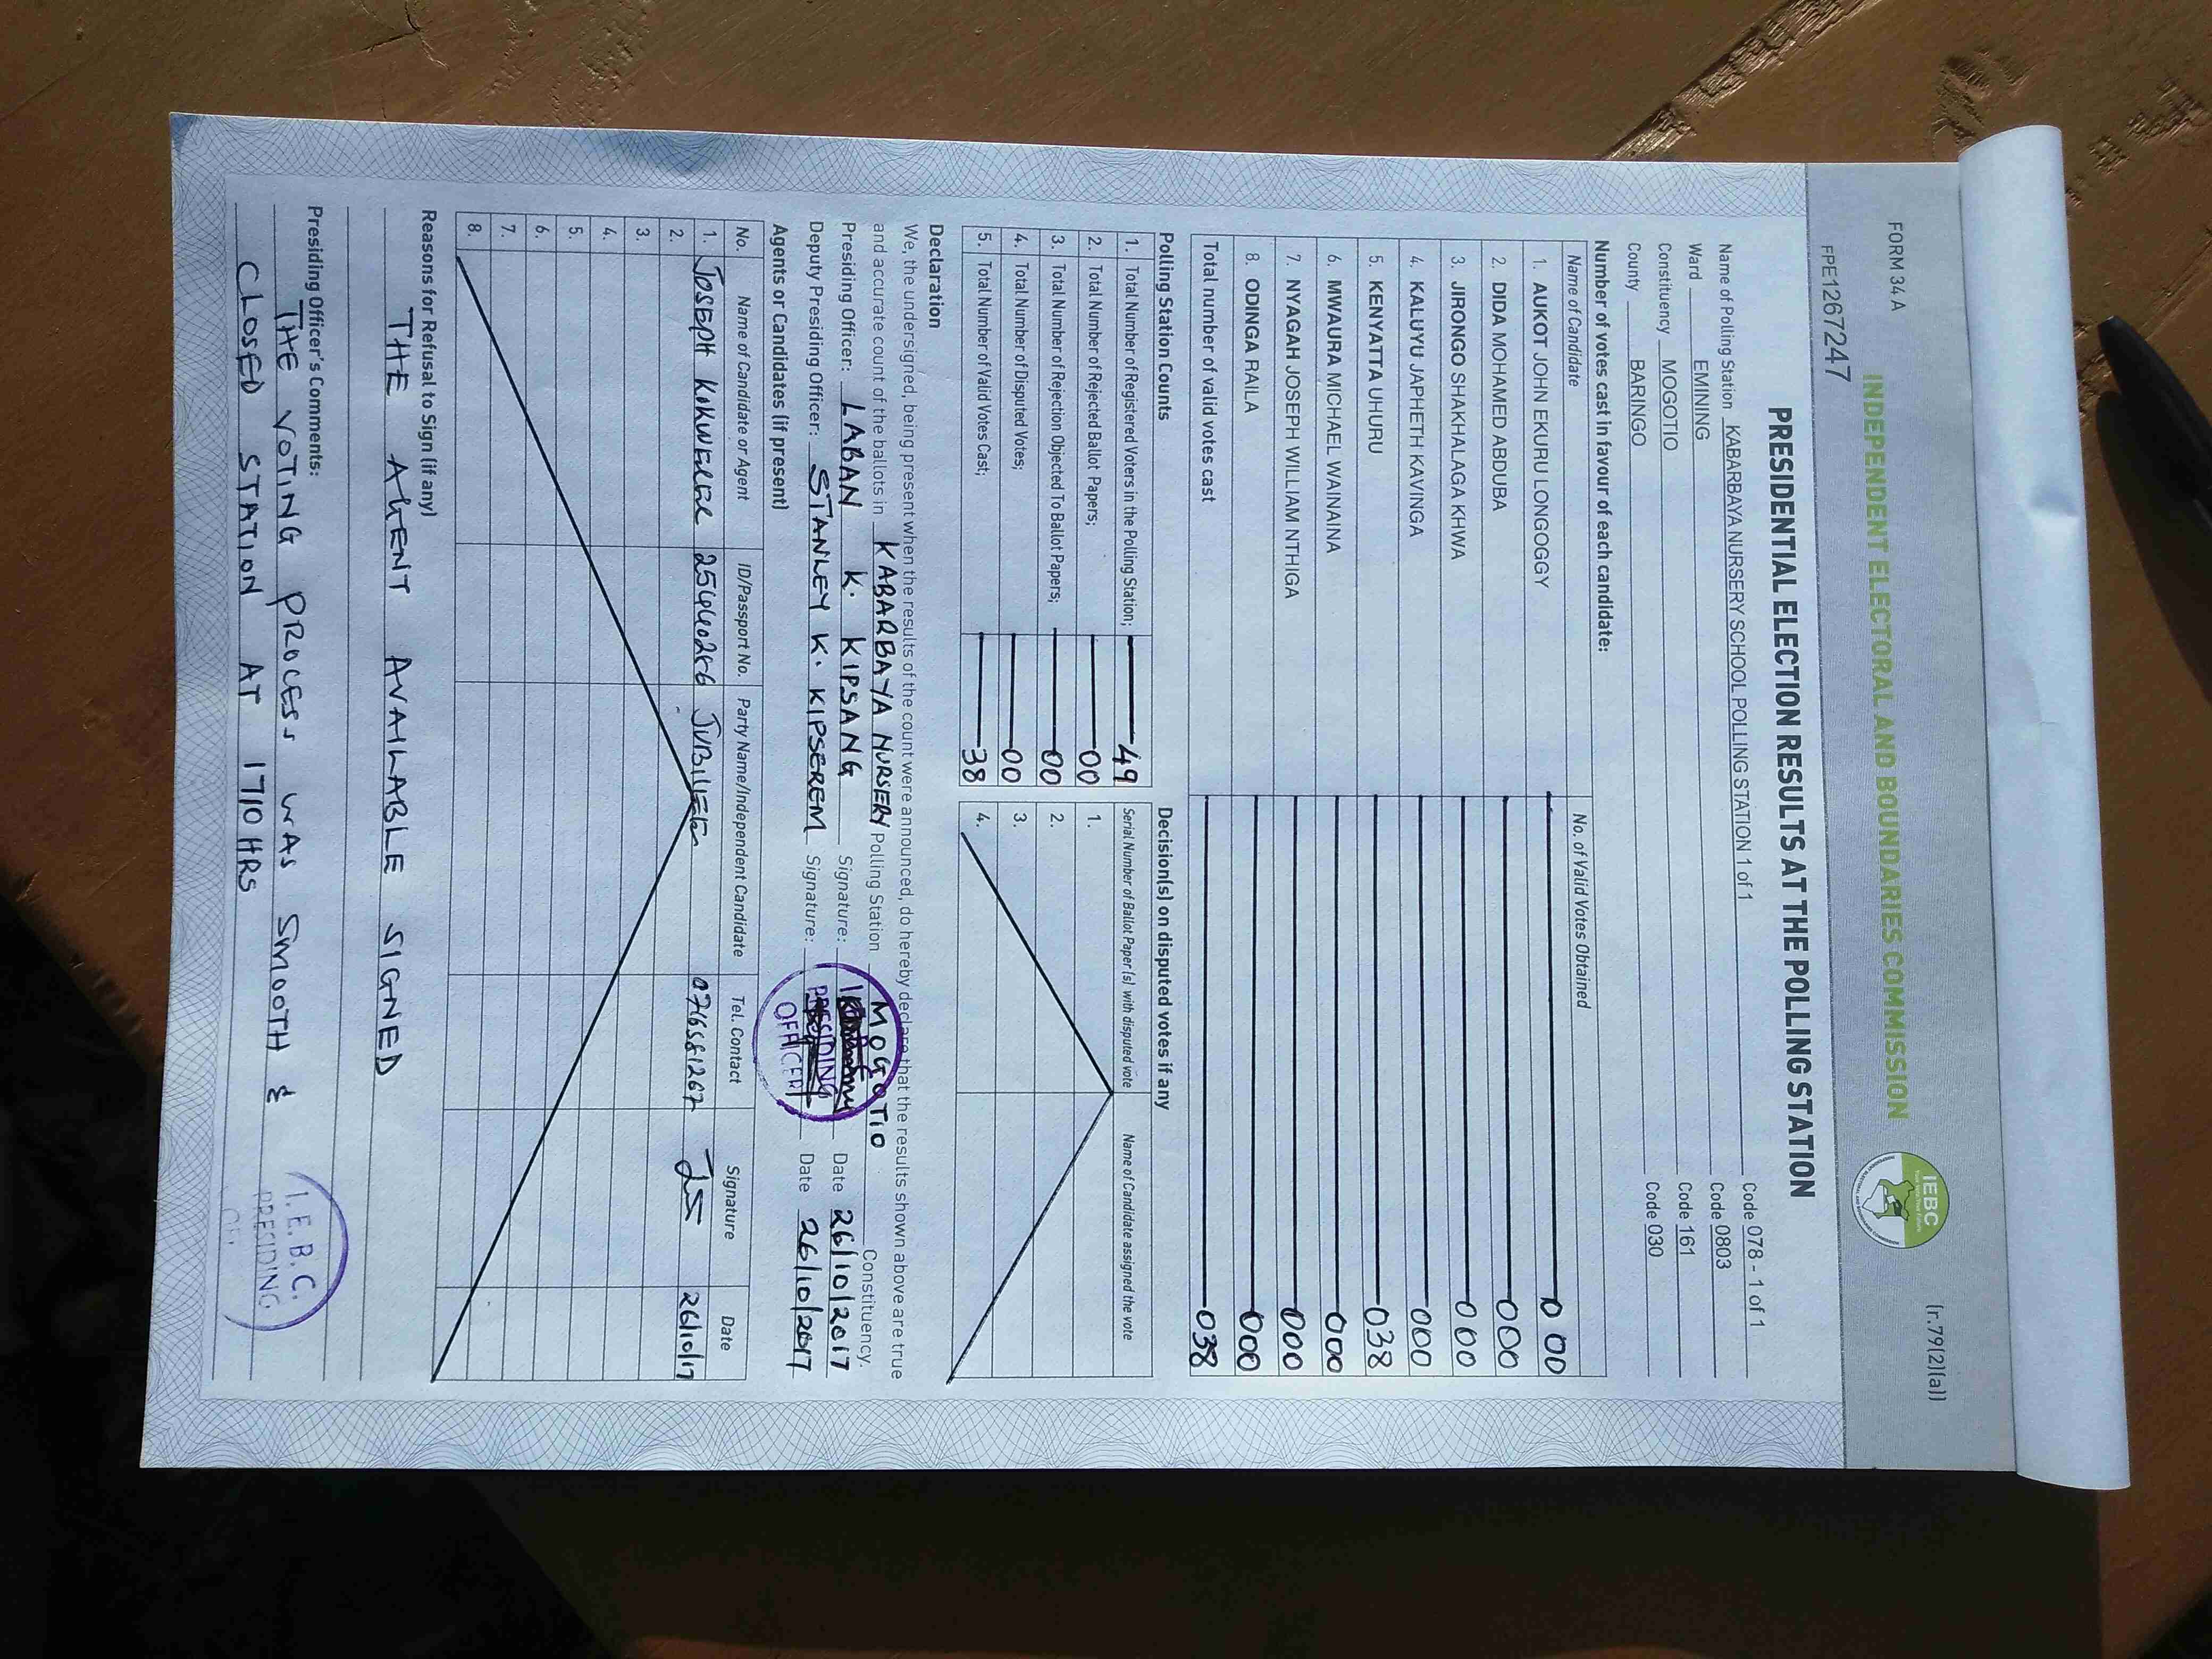 FORM 34 A
(r.79(2)(a))
INDEPENDENT ELECTORAL AND BOUNDARIES COMMISSION
IEBC
FPE1267247
PRESIDENTIAL ELECTION RESULTS AT THE POLLING STATION
Name of Polling Station KABARBAYA NURSERY SCHOOL POLLING STATION 1 of 1 Code 078 - 1 of 1
Ward EMINING Code 0803
Constituency MOGOTIO Code 161
County BARINGO Code 030
Number of votes cast in favour of each candidate:
Name of Candidate No. of Valid Votes Obtained
1. AUKOT JOHN EKURU LONGOGGY 000
2. DIDA MOHAMED ABDUBA 000
3. JIRONGO SHAKHALAGA KHWA 000
4. KALUYU JAPHETH KAVINGA 000
5. KENYATTA UHURU 038
6. MWAURA MICHAEL WAINAINA 000
7. NYAGAH JOSEPH WILLIAM NTHIGA 000
8. ODINGA RAILA 000
Total number of valid votes cast 038
Polling Station Counts
1. Total Number of Registered Voters in the Polling Station; 49
2. Total Number of Rejected Ballot Papers; 00
3. Total Number of Rejection Objected To Ballot Papers; 00
4. Total Number of Disputed Votes; 00
5. Total Number of Valid Votes Cast; 38
Decision(s) on disputed votes if any
Serial Number of Ballot Paper (s) with disputed vote Name of Candidate assigned the vote
1.
2.
3.
4.
Declaration
We, the undersigned, being present when the results of the count were announced, do hereby declare that the results shown above are true
and accurate count of the ballots in KABARBAYA NURSERY Polling Station MOGOTIO Constituency.
Presiding Officer: LABAN K. KIPSANG Signature: Date 26/10/2017
Deputy Presiding Officer: STANLEY K. KIPSEREM Signature: Date 26/10/2017
PRESIDING
OFFICER
Agents or Candidates (if present)
No. Name of Candidate or Agent ID/Passport No. Party Name/Independent Candidate Tel. Contact Signature Date
1. JOSEPH JUBILEE 26/10/17
2.
3.
4.
5.
6.
7.
8.
Reasons for Refusal to Sign (if any)
THE AGENT AVAILABLE SIGNED
Presiding Officer's Comments:
THE VOTING PROCESS WAS SMOOTH &
CLOSED STATION AT 1710 HRS
I.E.B.C.
PRESIDING